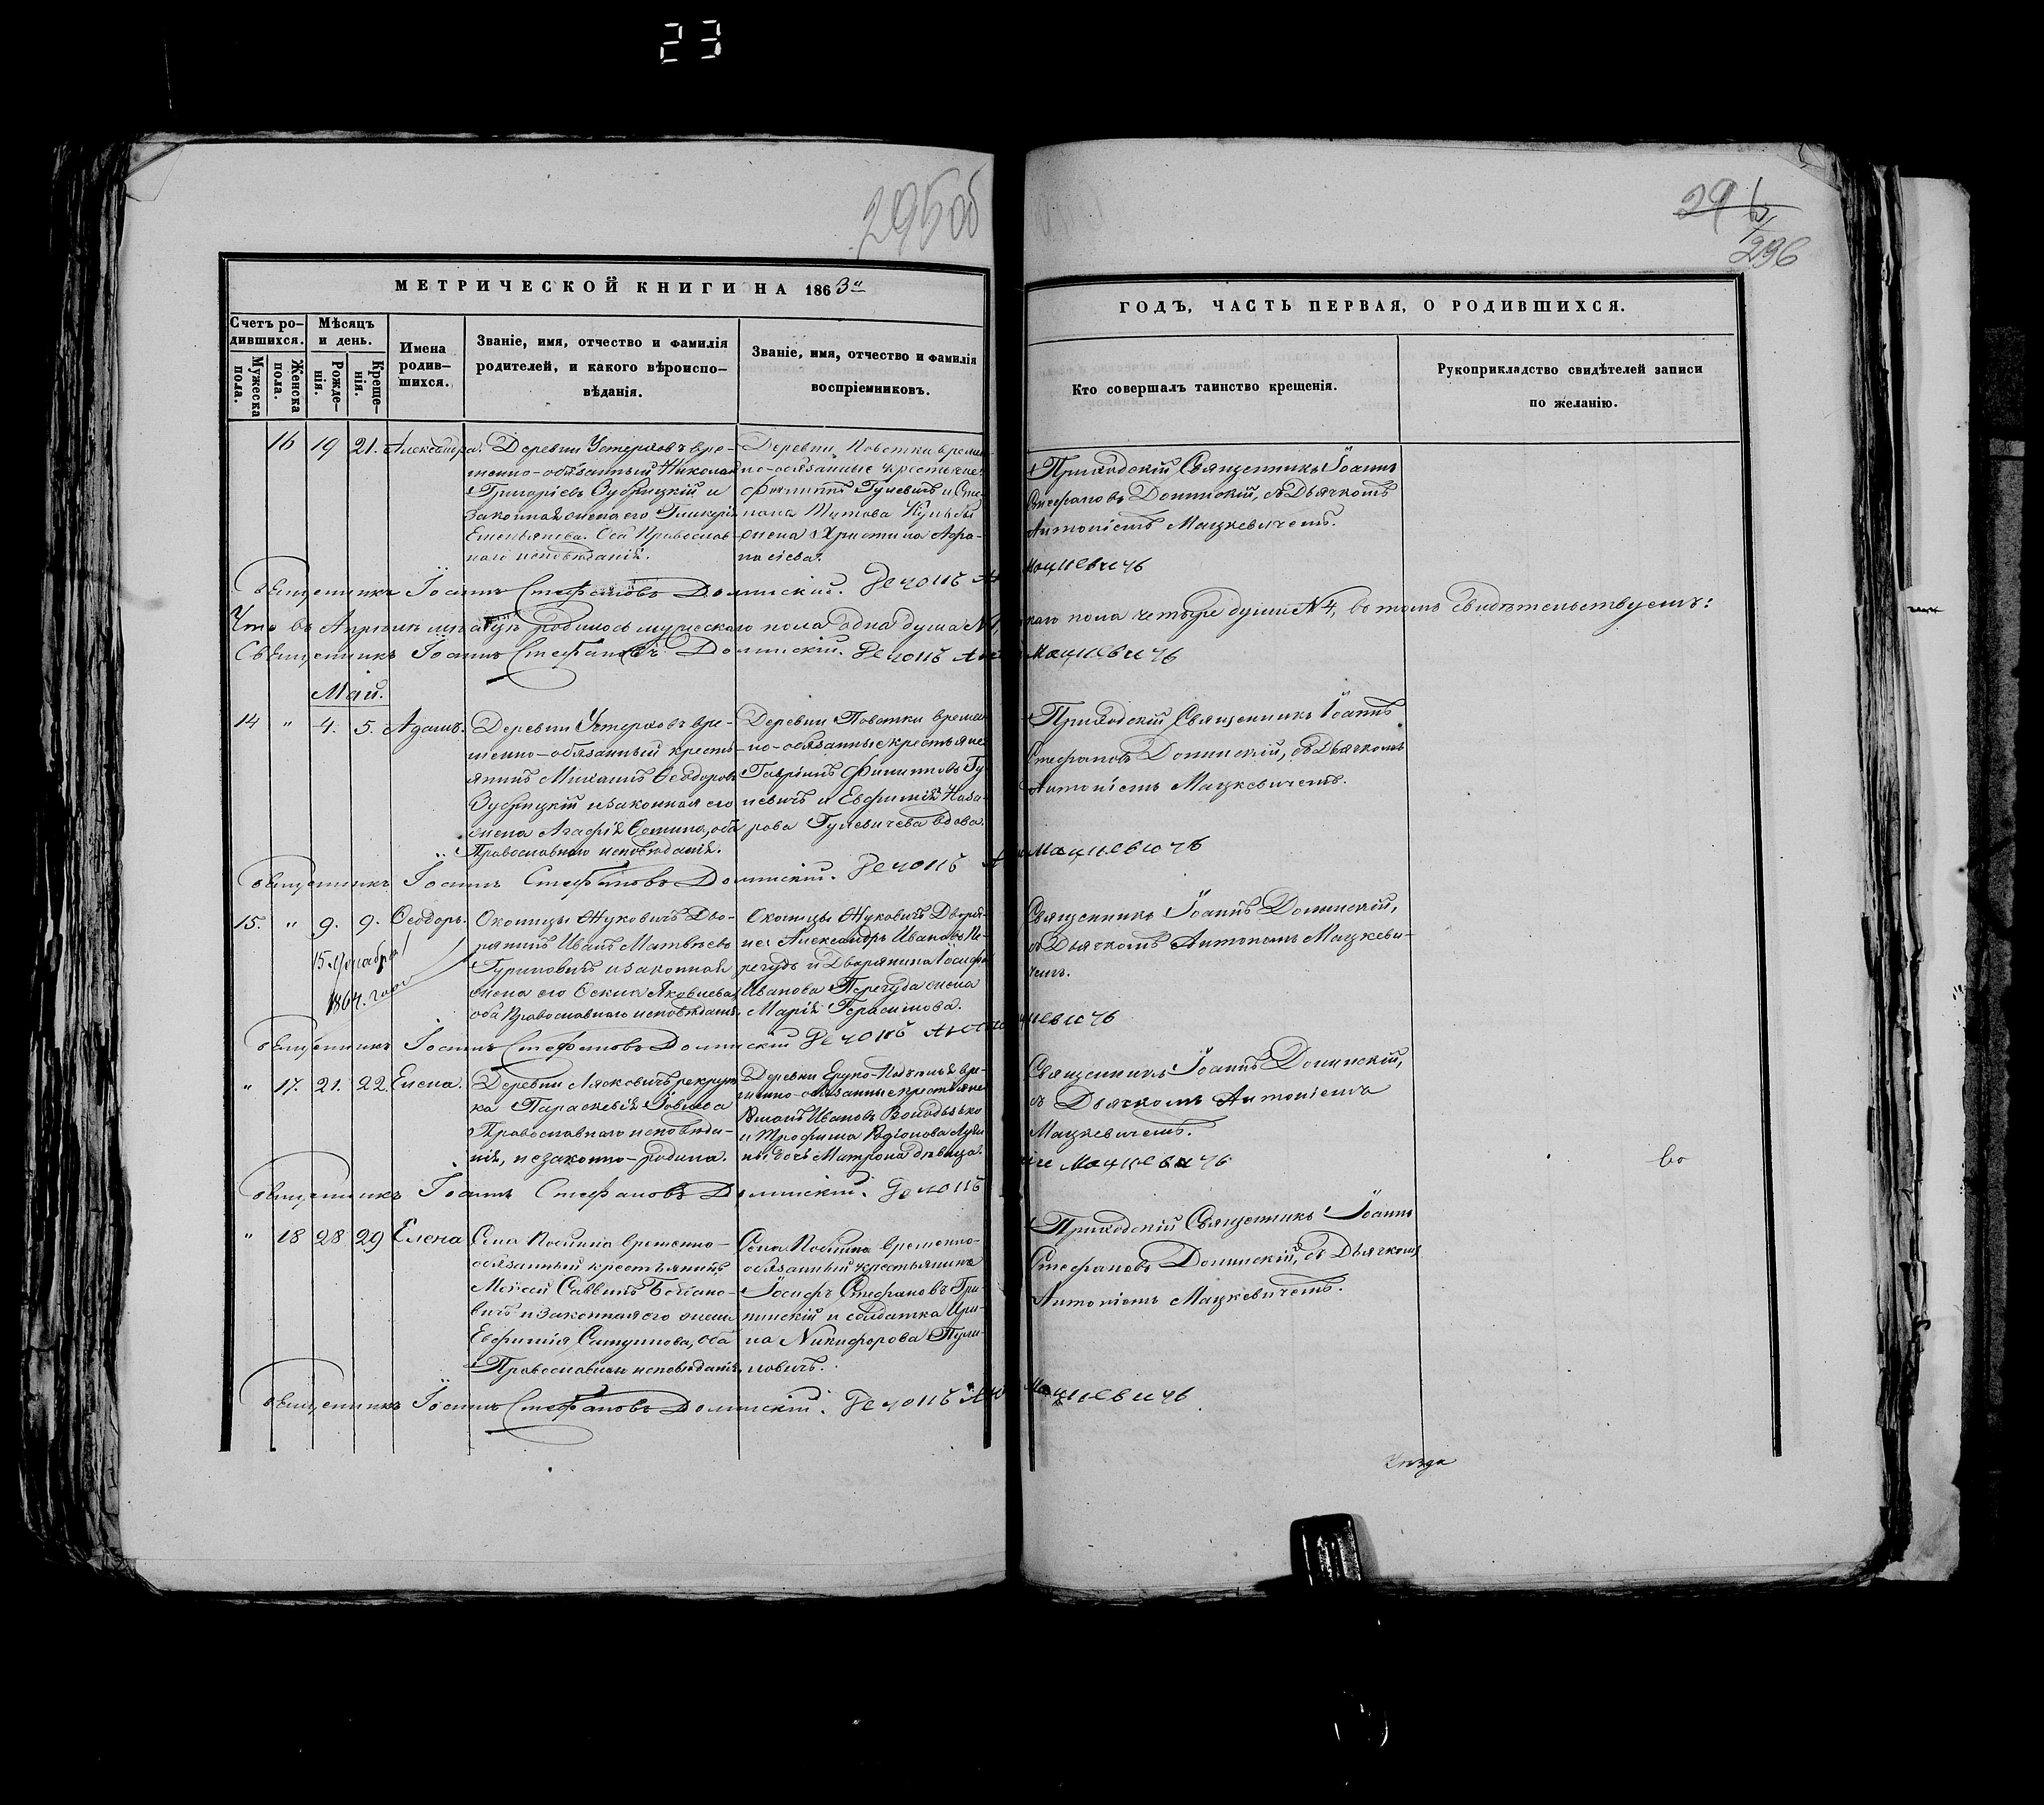 23
295 об
29
296
МЕТРИЧЕСКОЙ КНИГИ НА 1863й
Счетъ ро-
дившихся.
Мужеска
пола.
Женска
пола.
Мѣсяцъ
и день.
Рожде-
нія.
Креще-
нія.
Имена
родив-
шихся.
Званіе, имя, отчество и фамилія
родителей, и какого вѣроиспо-
вѣданія.
Званіе, имя, отчество и фамилія
воспріемниковъ.
ГОДЪ, ЧАСТЬ ПЕРВАЯ, О РОДИВШИХСЯ.
Кто совершалъ таинство крещенія.
Рукоприкладство свидѣтелей записи
по желанію.
16 19 21. Александра.
Деревни вре-
менно-обязанный Николай
Григоріевъ Зубрицкій и
законная жена его Гликерія
Емельянова. Оба Православ-
наго исповѣданія.
Деревни Повстки времен-
но-обязанные крестьяне:
Филиппъ Гулевичъ и Сте-
пана Титова
жена Христина Афа-
насіева.
Приходскій Священникъ Іоаннъ
Стефановъ Долинскій, съ Дьячкомъ
Антоніемъ Мацкевичемъ.
Священникъ Іоаннъ Стефановъ Долинскій. Дьячокъ Мацкевичъ
Что въ Апрѣлѣ мѣсяцѣ родилось мужескаго пола одна душа №1, скаго пола четыре души №4, въ томъ свидѣтельствуемъ:
Священникъ Іоаннъ Стефановъ Долинскій. Дьячокъ Мацкевичъ
Май.
14 " 4. 5. Адамъ.
Деревни вре-
менно-обязанный кресть-
янинъ Михаилъ Ѳеодоровъ
Зубрицкій и законная его
жена Агафія Ѳомина, оба
Православнаго исповѣданія.
Деревни Повстки времен-
но-обязанные крестьяне
Гавріилъ Филипповъ Гу-
левичъ и Евфимія Наза-
рова Гулевичева вдова.
Приходскій Священникъ Іоаннъ
Стефановъ Долинскій, съ Дьячкомъ
Антоніемъ Мацкевичемъ.
Священникъ Іоаннъ Стефановъ Долинскій. Дьячокъ Мацкевичъ
15. " 9. 9. Ѳеодоръ.
15 Декабря
1864. года
Околицы Жуковичъ Дво-
рянинъ Иванъ Матвѣевъ
Гуриновичъ и законная
жена его Ѳекла Яковлева,
оба Православнаго исповѣданія.
Околицы Жуковичъ Дворя-
не: Александръ Ивановъ Пе-
регудъ и Дворянина Іосифа
Иванова Перегуда жена
Марія Герасимова.
Священникъ Іоаннъ Долинскій,
съ Дьячкомъ Антономъ Мацкеви-
чемъ.
Священникъ Іоаннъ Стефановъ Долинскій Дьячокъ
" 17. 21. 22. Елена.
Деревни Лясковичъ рекрут-
ка Параскевія Іовлева
Православнаго исповѣда-
нія, незаконно-родила.
Деревни вре-
менно-обязанные крестьяне
Ивановъ
и Трофима Родіонова
дочь Матрона дѣвица.
Священникъ Іоаннъ Долинскій,
съ Дьячкомъ Антоніемъ
Мацкевичемъ.
Священникъ Іоаннъ Стефановъ Долинскій. Дьячокъ Мацкевичъ
во
" 18 28 29 Елена
Села временно-
обязанный крестьянинъ
Моѵсей Саввинъ
вичъ и законная его жена
Евфимія оба
Православнаго исповѣданія.
Села временно-
обязанный крестьянинъ
Іосифъ Стефановъ Гри-
и солдатка Ири-
на Никифорова
новичъ.
Приходскій Священникъ Іоаннъ
Стефановъ Долинскій, съ Дьячкомъ
Антоніемъ Мацкевичемъ.
Священникъ Іоаннъ Стефановъ Долинскій. Дьячокъ Мацкевичъ